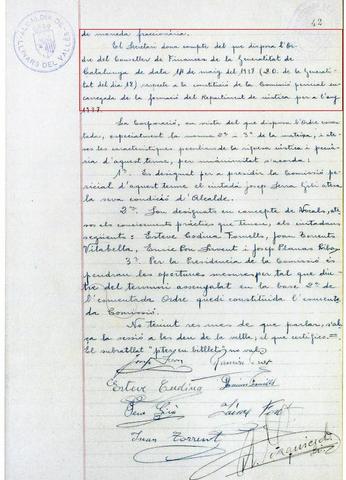 ALCALDIA DE
LLINARS DEL VALLÈS
42
de moneda fraccionària.
El Secretari dona compte del que disposa l'Or-
dre del Conseller de Finances de la Generalitat de
Catalunya de data 14 de maig del 1937 (D.O. de la Generali-
tat del dia 18) respecte a la constitució de la Comissió pericial en-
carregada de la formació del Repartiment de rústica per a l'any
1937.
La Corporació, en vista del que disposa l'Ordre esmen-
tada, especialment la norma 2ª 3ª de la mateixa, i ate-
ses les característiques peculiars de la riquesa rústica i pecuà-
ria d'aquest terme, per unànimitat s'acorda:
1er. Es designat per a presidir la Comissió pe-
ricial d'aquest terme el ciutadà Josep Serra Gili atesa
la seva condició d'Alcalde.
2on. Son designats en concepte de Vocals, ate-
sos els coneixements pràctics que tenen, els ciutadans
següents: Esteve Codina Fornells, Joan Torrents
Vilabella, Enric Pou Sirvent i Josep Planas Riba.
3er. Per la Presidencia de la Comissió es
pendran les oportunes mesures per tal que din-
tre del termini assenyalat en la base 2ª de
l'esmentada Ordre quedi constituida l'esmenta-
da Comissió.
No tenint res mes de que parlar, s'al-
ça la sessió a les deu de la vetlla, el que certifico.=
El subratllat "ptes en bitllets" no val.
Esteve Codina
Pere
Jaume Font
Juan Torrent